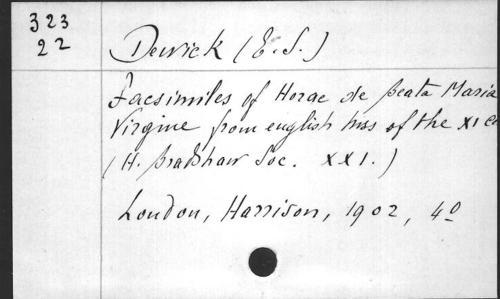 323
22
Dewick (E. S.)
Facsimiles of Horae de beata Maria
Virgine from english mss of the XI c
(H. Bradshaw Soc. XXI.)
London, Harrison, 1902, 4o